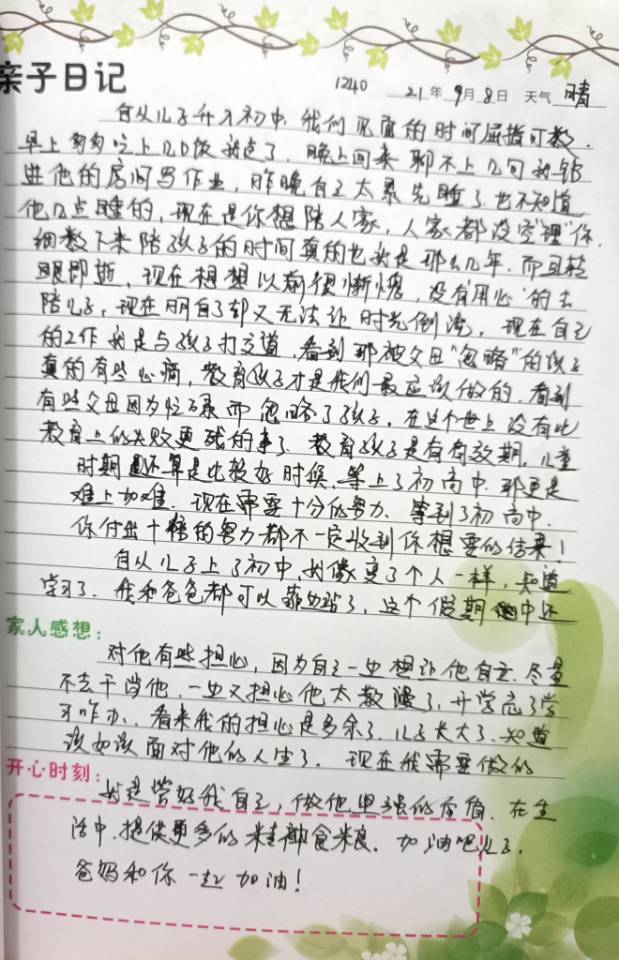 亲子日记
1240 21年9月8日 天气 晴
自从儿子升入初中,我们见面的时间屈指可数.
早上匆匆吃上几口饭就走了.晚上回来聊不上几句就钻
进他的房间写作业,昨晚自己太累先睡了.也不知道
他几点睡的,现在是你想陪人家,人家都没空"理"你.
细数下来陪孩子的时间真的也就是那么几年.而且转
眼即逝,现在想想以前很惭愧,没有"用心"的去
陪儿子,现在明白了却又无法让时光倒流,现在自己
的工作就是与孩子打交道,看到那被父母"忽略"的孩子
真的有些心痛,教育孩子才是我们最应该做的,看到
有些父母因为忙碌而忽略了孩子,在这个世上没有比
教育上的失败更残的事了.教育孩子是有有效期,儿童
时期还算是比较好时候,等上了初高中.那更是
难上加难.现在需要十分的努力.等到了初高中.
你付出十倍的努力都不一定收到你想要的结果!
自从儿子上了初中,就像变了个人一样,知道
学习了.我和爸爸都可以靠边站了,这个假期中还
家人感想:
对他有些担心,因为自己一边想让他自立.尽量
不去干涉他.一边又担心他太散漫了,开学后了学
习咋办.看来我的担心是多余了.儿子长大了.知道
该如该面对他的人生了.现在我需要做的
开心时刻:
就是管好我自己,做他坚强的后盾.在生
活中.提供更多的精神食粮.加油吧儿子,
爸妈和你一起加油!